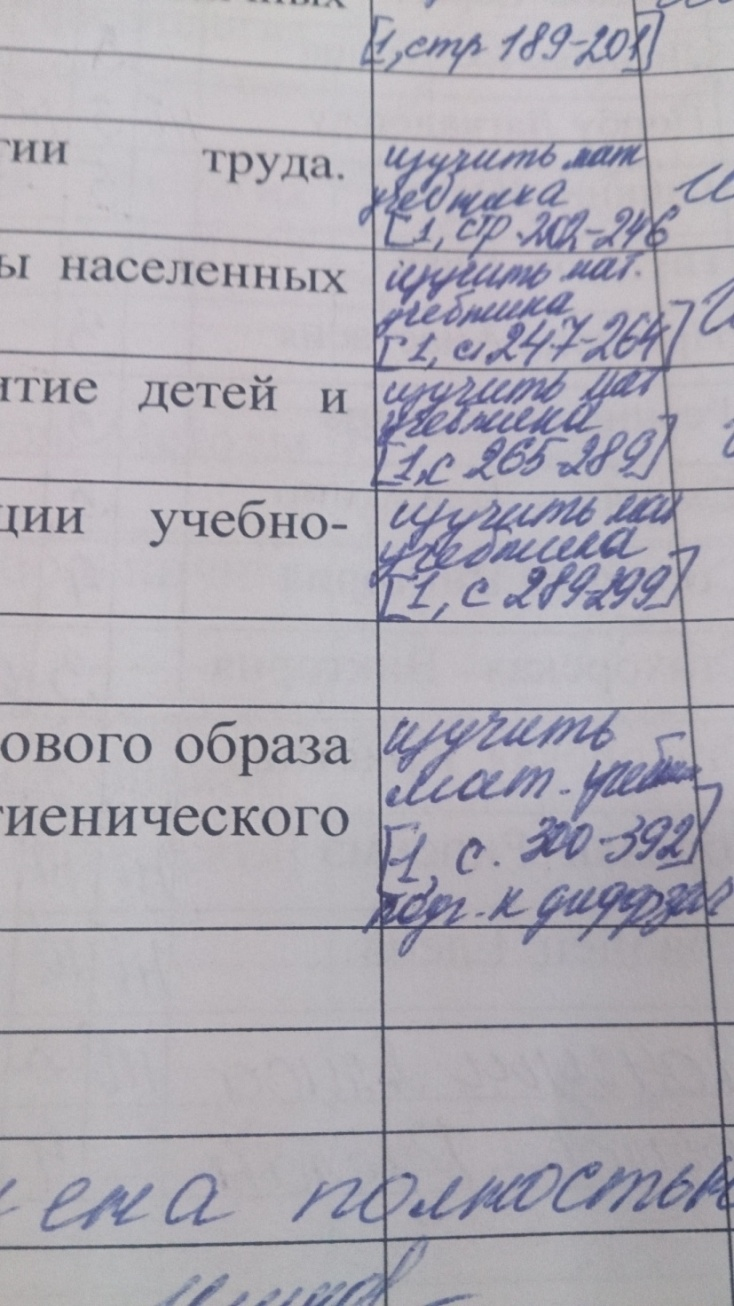 [1, стр 189-201]
гии труда.
изучить мат
учебника
[1, стр. 202-246
ы населенных
изучить мат.
учебника
[1, с. 247-264]
итие детей и
изучить мат
учебника
[1, с 265-289]
ции учебно-
изучить мат
учебника
[1, с 289-299]
ового образа
изучить
мат. учебник
гиенического
[1, с. 300-392]
подг. к дифф зач
ена полностью